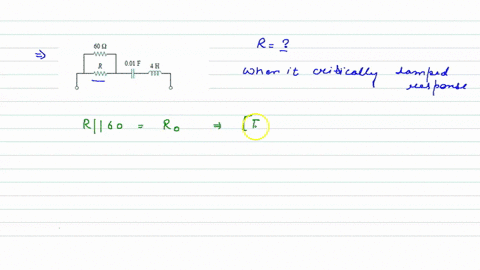 ⇒
60 Ω
R
0.01 F
4 H
R = ?
When it critically damped
response
R || 60 = R₀ ⇒ [